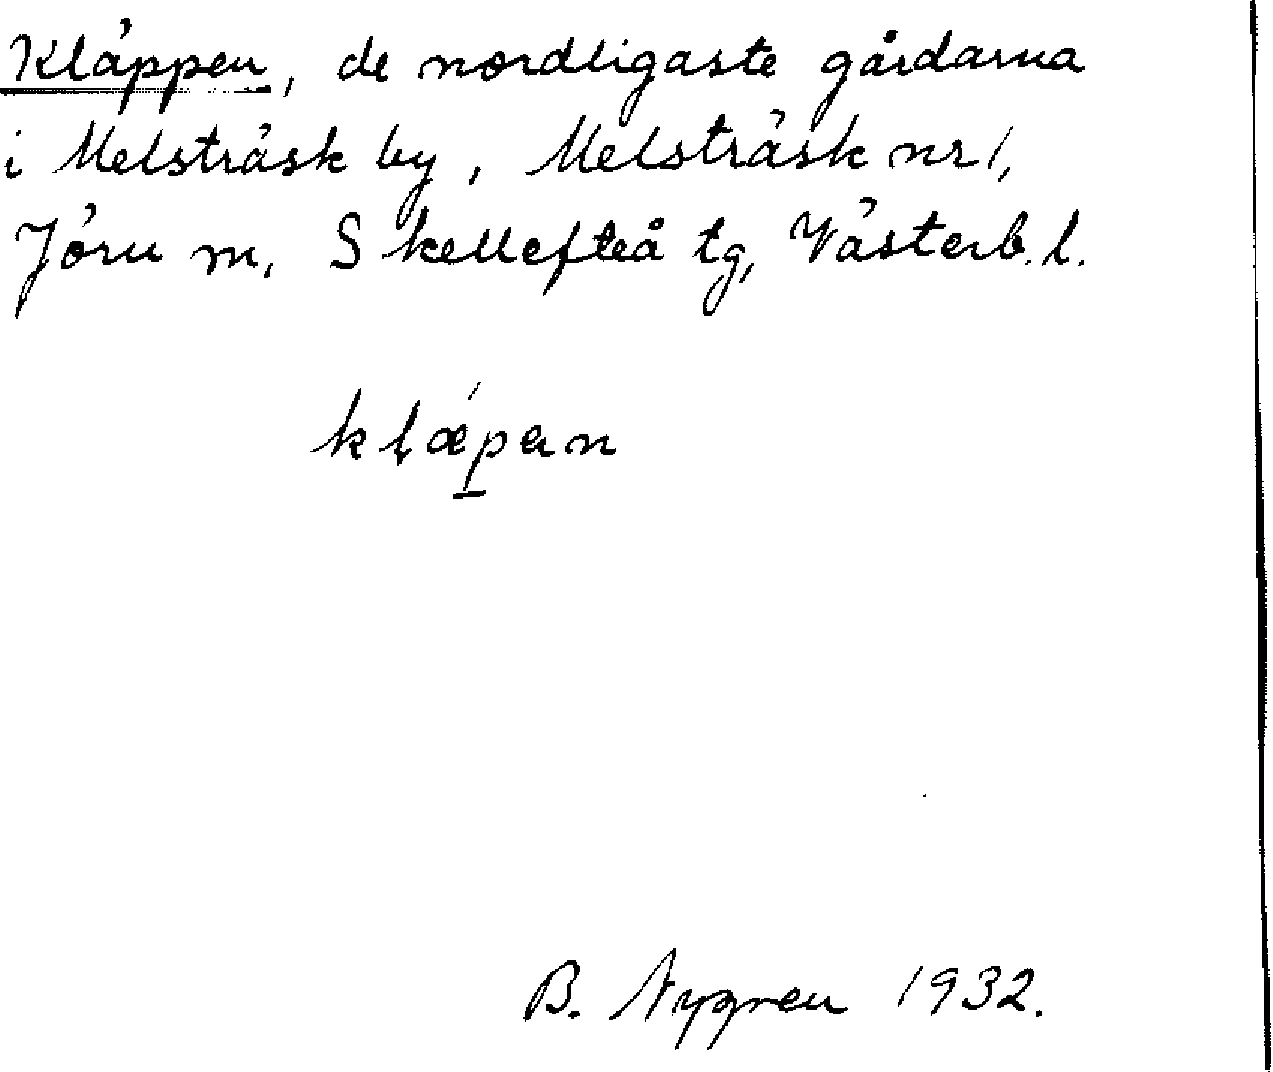 Kläppen, de nordligaste gårdarna
i Melsträsk by, Melsträsk nr 1,
Jörn sn, Skellefteå tg, Västerb. l.
klæ´pen
B. Nygren 1932.